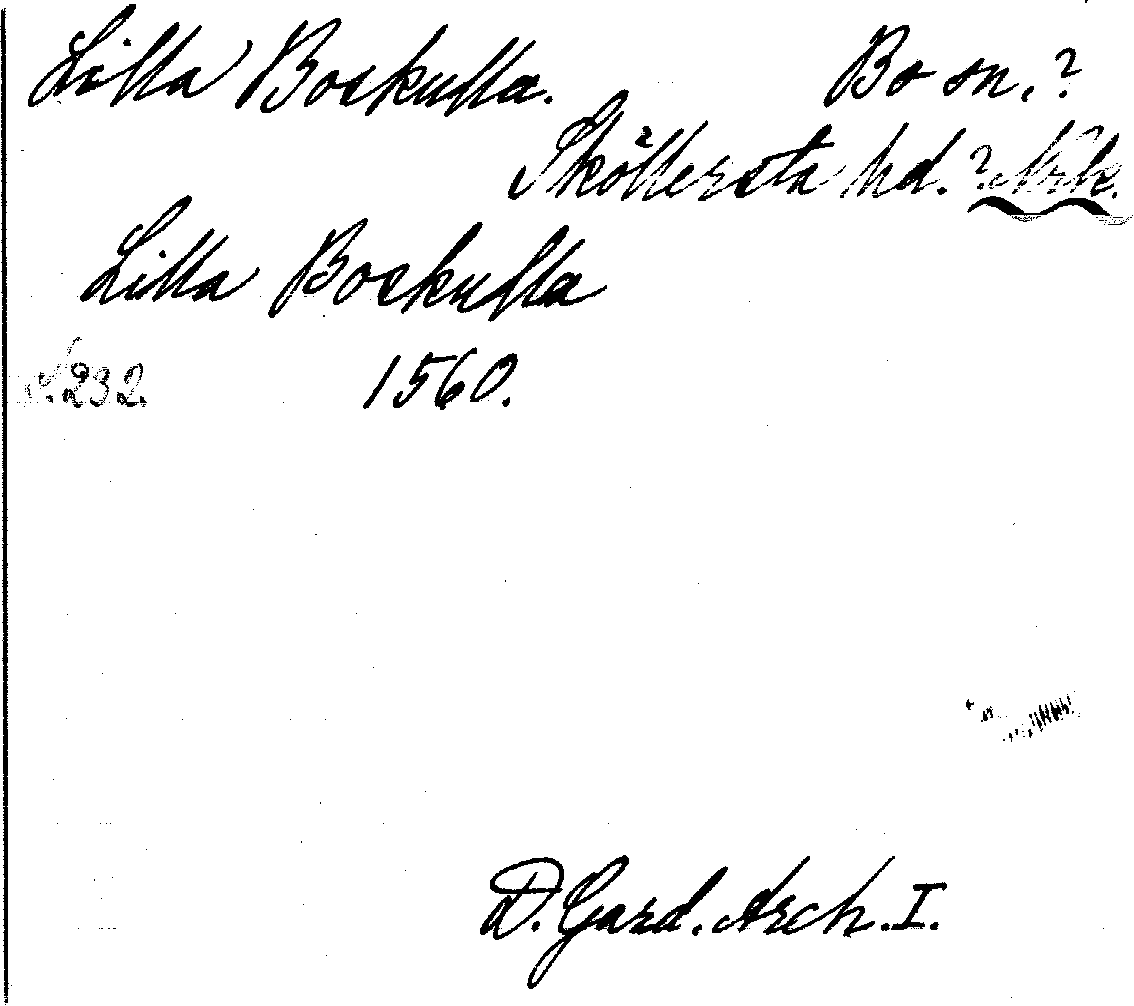 Lilla Boskulla. Bo sn.?
Sköllersta hd.? Nrk.
Lilla Boskulla
s. 232. 1560.
D. Gard. Arch. I.